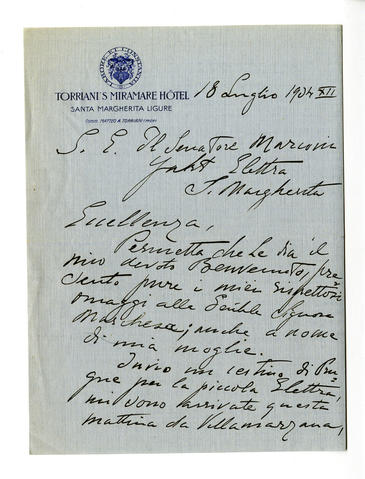 LABORE ET CONSTANTIA
TORRIANI'S MIRAMARE HÔTEL
SANTA MARGHERITA LIGURE
Comm. MATTEO A. TORRIANI
18 Luglio 1934 XII
S. E. Il Senatore Marconi
Yacht Elettra
S. Margherita
Eccellenza,
Permetta che Le dia il
mio devoto Benvenuto, pre=
sento pure i miei rispettosi
omaggi alla Gentile Signora
Marchesa; anche a nome
di mia moglie.
Invio un cestino di Pru=
gne per la piccola Elettra,
mi sono arrivate questa
mattina da Villamarzana,